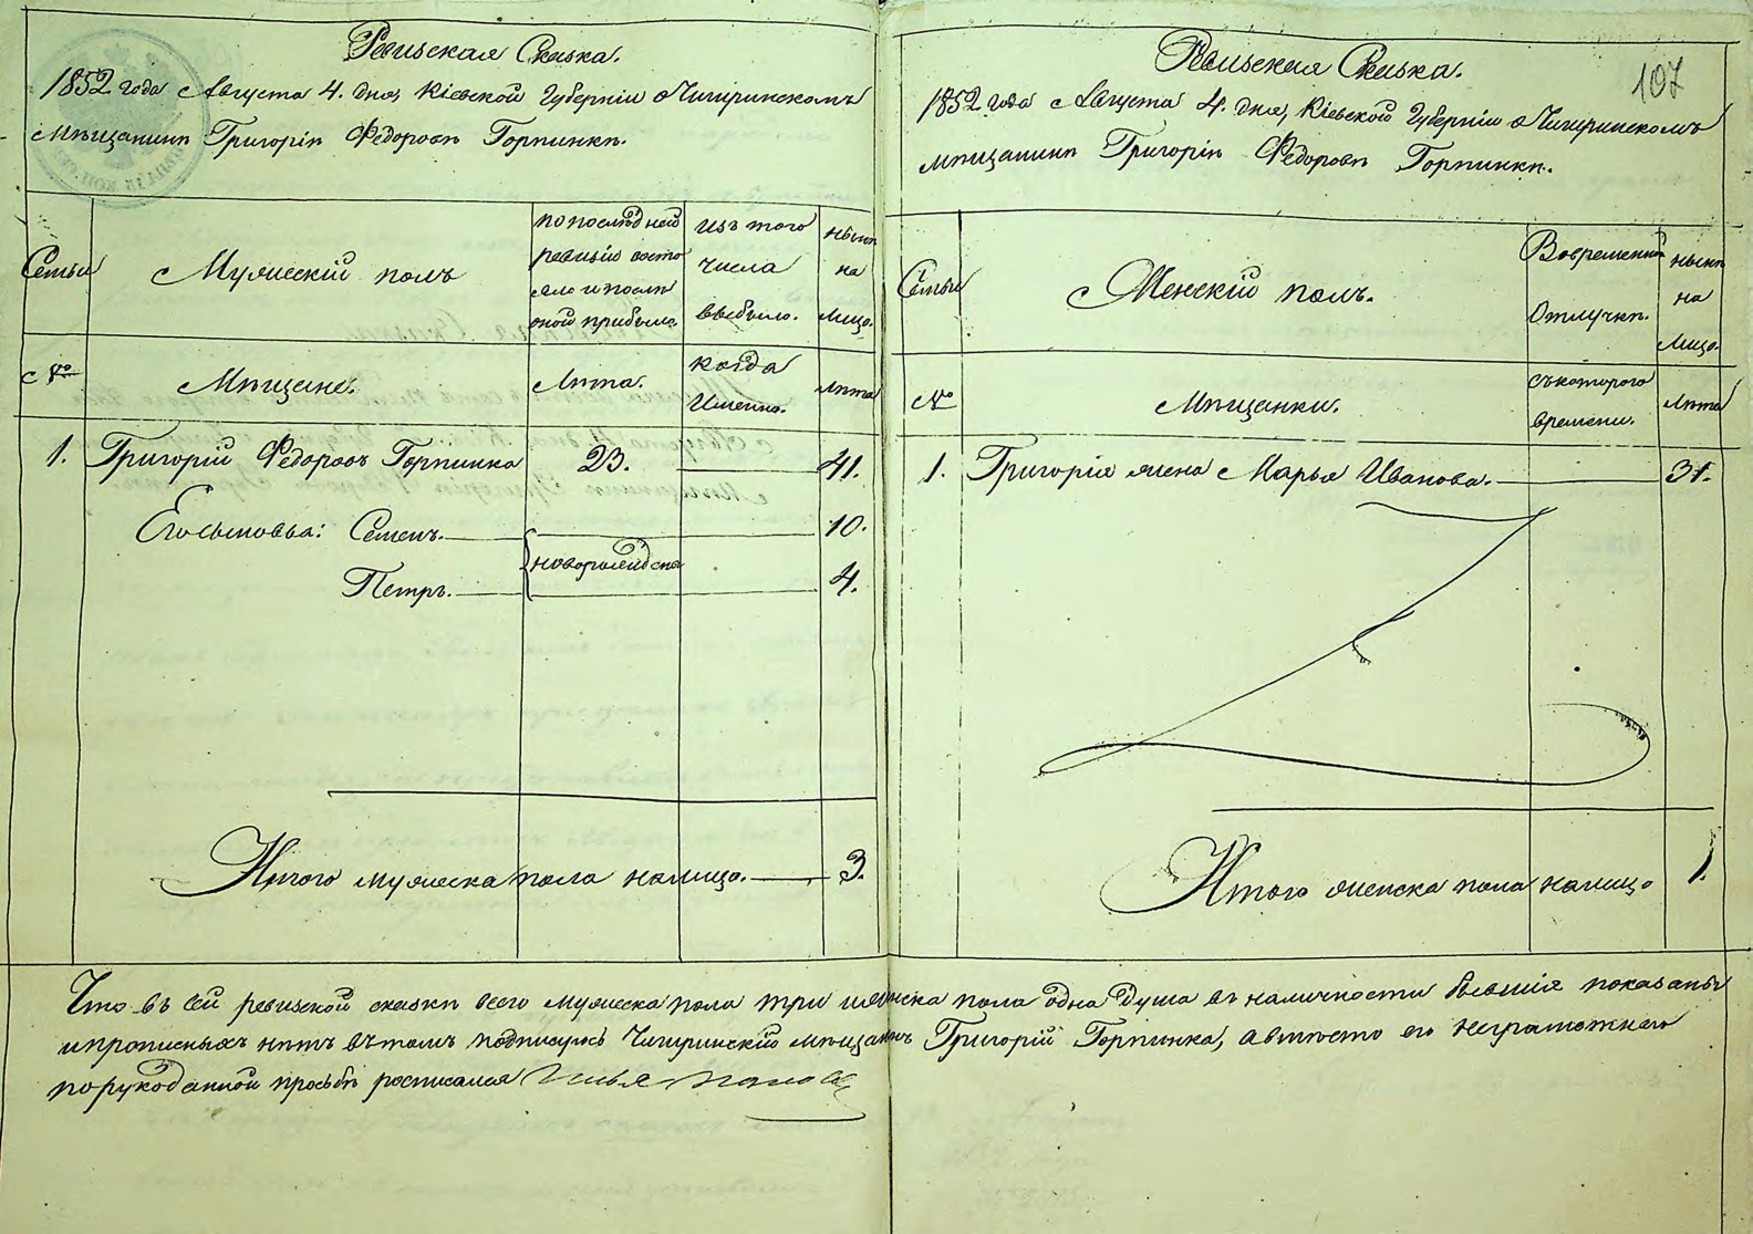 Ревизская Сказка.
1852 года Августа 4. дня, Кіевской Губерніи о Чигиринскомъ
Мѣщанинѣ Григоріѣ Федоровѣ Горпинкѣ.
Семьи
Мужескій полъ
по последней
ревизіи состо
яло и послѣ
оной прибыло.
изъ того
числа
выбыло.
нынѣ
на
лицо.
№
Мѣщане.
Лѣта.
когда
Именно.
Лѣта
1. Григорій Федоровъ Горпинка 23. 41.
Его сыновья: Семенъ. 10.
новорожденные
Петръ. 4.
Итого мужеска пола налицо. 3.
Ревизская Сказка.
107
1852 года Августа 4. дня, Кіевской Губерніи о Чигиринскомъ
мѣщанинѣ Григоріѣ Федоровѣ Горпинкѣ.
Семьи
Женскій полъ.
Вовременной
Отлучкѣ.
нынѣ
на
Лицо.
№
Мѣщанки.
съкоторого
времени.
Лѣта
1. Григорія жена Марья Иванова. 31.
Итого женска пола налицо 1.
Что въ сей ревизской сказкѣ всего мужеска пола три и женска пола одна душа въ наличности бывшія показаны
и прописныхъ нѣтъ вътомъ подписуюсь Чигиринскій мѣщанинъ Григорій Горпинка, а вмѣсто его неграмотного
по рукоданной прозьбѣ росписался Илья